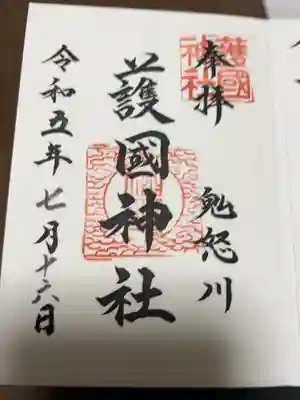 奉拝 鬼怒川
護國神社
令和五年七月十六日
護國
神社